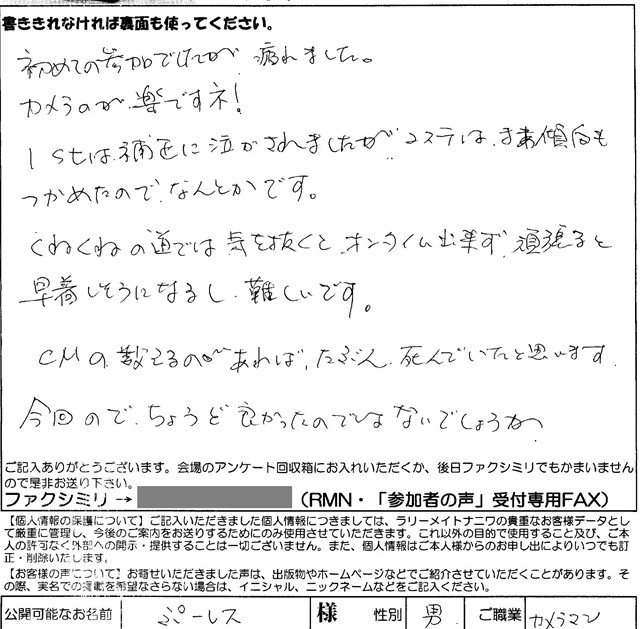 書ききれなければ裏面も使ってください。
初めての参加でしたが 疲れました。
カメラのが楽ですネ!
1stは、補正に泣かされましたが、2ステは、まあ傾向も
つかめたので、なんとかです。
くねくねの道では気を抜くと、オンタイム出来ず、頑張ると
早着しそうになるし、難しいです。
CMの数えるのがあれば、たぶん、死んでいたと思います。
今回ので、ちょうど良かったのではないでしょうか。
ご記入ありがとうございます。会場のアンケート回収箱にお入れいただくか、後日ファクシミリでもかまいません
ので是非お送り下さい。
ファクシミリ → (RMN・「参加者の声」受付専用FAX)
【個人情報の保護について】ご記入いただきました個人情報につきましては、ラリーメイトナニワの貴重なお客様データとし
て厳重に管理し、今後のご案内をお送りするためにのみ使用させていただきます。これ以外の目的で使用すること及び、ご本
人の許可なく外部への開示・提供することは一切ございません。また、個人情報はご本人様からのお申し出によりいつでも訂
正・削除いたします。
【お客様の声について】お寄せいただきました声は、出版物やホームページなどでご紹介させていただくことがあります。そ
の際、実名での掲載を希望なさらない場合は、イニシャル、ニックネームなどをご記入ください。
公開可能なお名前 ぷーレス 様 性別 男 ご職業 カメラマン